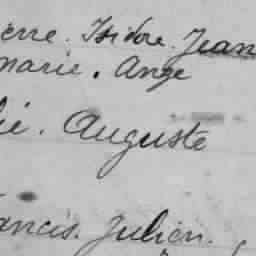 ierre. Isidore. Jean
marie. Ange
ié. Auguste
ancis. Julien.